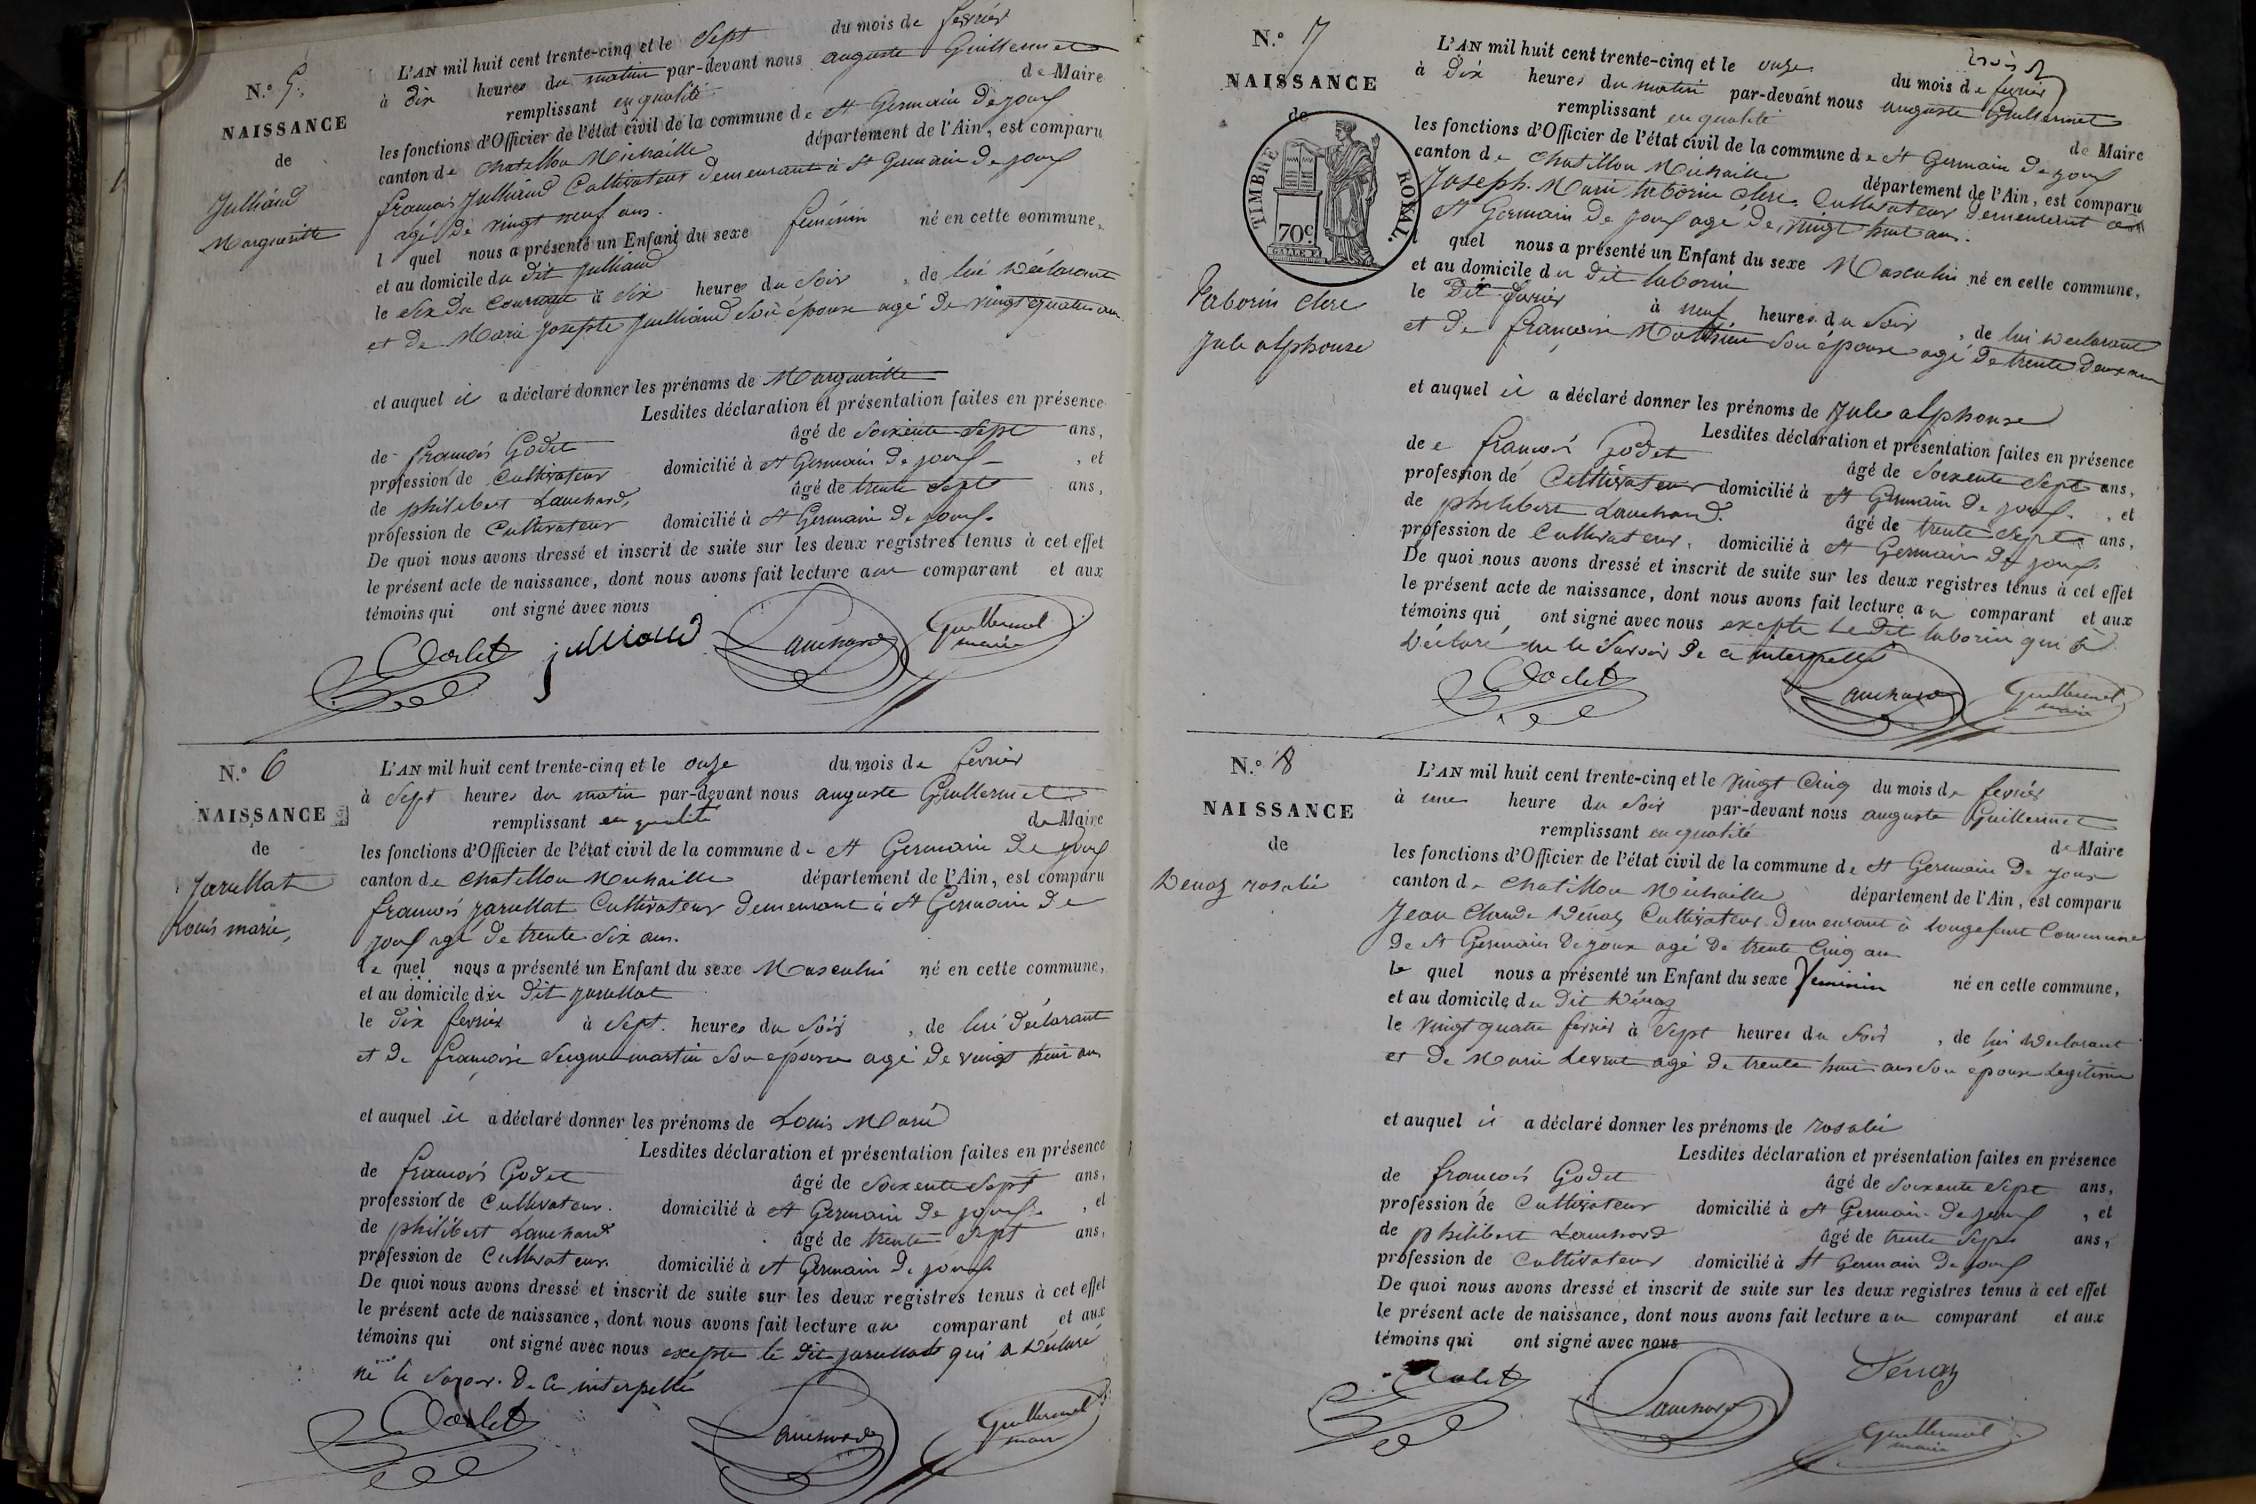 N.° 5.
NAISSANCE
de
Julliand
Margueritte
L'AN mil huit cent trente-cinq et le Sept du mois de fevrier
à dix heures du matin par-devant nous auguste Guillermet
remplissant en qualité de Maire
les fonctions d'Officier de l'état civil de la commune de St Germain de joux
canton de Chatillon Michaille département de l'Ain, est comparu
françois Julliand Cultivateur demeurant à St Germain de joux
agé de vingt neuf ans.
l quel nous a présenté un Enfant du sexe feminin né en cette commune,
et au domicile du dit Julliand
le Six du Courant à Six heures du Soir, de lui declarant
et de Marie Josephte Julliand Son épouse agé de vingt quatre ans
et auquel il a déclaré donner les prénoms de Margueritte
Lesdites déclaration et présentation faites en présence
de françois Godet âgé de Soixente Sept ans,
profession de Cultivateur domicilié à St Germain de joux, et
de philibert Lanchard, âgé de trente Sept ans,
profession de Cultivateur domicilié à St Germain de joux.
De quoi nous avons dressé et inscrit de suite sur les deux registres tenus à cet effet
le présent acte de naissance, dont nous avons fait lecture au comparant et aux
témoins qui ont signé avec nous
Godet julliand Lanchard Guillermet
maire
N.° 6
NAISSANCE
de
Jarullat
Louis marie,
L'AN mil huit cent trente-cinq et le onze du mois de fevrier
à Sept heures du matin par-devant nous auguste Guillermet
remplissant en qualité de Maire
les fonctions d'Officier de l'état civil de la commune de St Germain de joux
canton de Chatillon Michaille département de l'Ain, est comparu
francois jarullat Cultivateur demeurant à St Germain de
joux agé de trente Six ans.
le quel nous a présenté un Enfant du sexe Masculin né en cette commune,
et au domicile du dit jarullat
le dix fevrier à Sept heures du Soir, de lui déclarant
et de françoise Seigne martin Son épouse agé de vingt huit ans
et auquel il a déclaré donner les prénoms de Louis Marie
Lesdites déclaration et présentation faites en présence
de francois Godet âgé de Soixente Sept ans,
profession de Cultivateur. domicilié à St Germain de joux, et
de philibert Lanchard âgé de trente Sept ans,
profession de Cultivateur. domicilié à St Germain de joux
De quoi nous avons dressé et inscrit de suite sur les deux registres tenus à cet effet
le présent acte de naissance, dont nous avons fait lecture au comparant et aux
témoins qui ont signé avec nous excepte le dit jarullat qui a déclaré
ne le Savoir de ce interpellé
Godet Lanchard Guillermet
maire
N.° 7
NAISSANCE
de
TIMBRE ROYAL.
70c
Taborin clerc
Jule alphonse
L'AN mil huit cent trente-cinq et le onze du mois de fevrier
à dix heures du matin par-devant nous auguste Guillermet
remplissant en qualité de Maire
les fonctions d'Officier de l'état civil de la commune de St Germain de joux
canton de Chatillon Michaille département de l'Ain, est comparu
Joseph Marie taborin clerc, Cultivateur demeurant
St Germain de joux agé de vingt huit ans.
l quel nous a présenté un Enfant du sexe Masculin né en cette commune,
et au domicile du dit taborin
le dit fevrier à neuf heures du Soir, de lui declarant
et de françoise Mathieu Son épouse agé de trente deux ans
et auquel il a déclaré donner les prénoms de Jule alphonse
Lesdites déclaration et présentation faites en présence
de françois Godet âgé de Soixente Sept ans,
profession de Cultivateur domicilié à St Germain de joux, et
de philibert Lanchard. âgé de trente Sept ans,
profession de Cultivateur, domicilié à St Germain de joux.
De quoi nous avons dressé et inscrit de suite sur les deux registres tenus à cet effet
le présent acte de naissance, dont nous avons fait lecture au comparant et aux
témoins qui ont signé avec nous excepte Le dit taborin qui a
déclaré ne le Savoir de ce interpellé
Godet Lanchard Guillermet
maire
N.° 8
NAISSANCE
de
Dénaz rosalie
L'AN mil huit cent trente-cinq et le vingt Cinq du mois de fevrier
à une heure du Soir par-devant nous auguste Guillermet
remplissant en qualité de Maire
les fonctions d'Officier de l'état civil de la commune de St Germain de joux
canton de Chatillon Michaille département de l'Ain, est comparu
Jean Claude Dénaz Cultivateur demeurant à longefant Commune
de St Germain de joux agé de trente Cinq ans
le quel nous a présenté un Enfant du sexe feminin né en cette commune,
et au domicile du dit Dénaz
le vingt quatre fevrier à Sept heures du Soir, de lui declarant
et de Marie Levrat agé de trente huit ans Son épouse Legitime
et auquel il a déclaré donner les prénoms de rosalie
Lesdites déclaration et présentation faites en présence
de francois Godet âgé de Soixente Sept ans,
profession de Cultivateur domicilié à St Germain de joux, et
de philibert Lanchard âgé de trente Sept ans,
profession de Cultivateur domicilié à St Germain de joux
De quoi nous avons dressé et inscrit de suite sur les deux registres tenus à cet effet
le présent acte de naissance, dont nous avons fait lecture au comparant et aux
témoins qui ont signé avec nous
Godet Lanchard Dénaz
Guillermet
maire